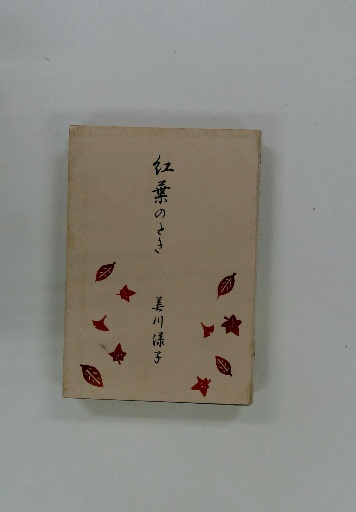 紅葉のとき
美川漾子